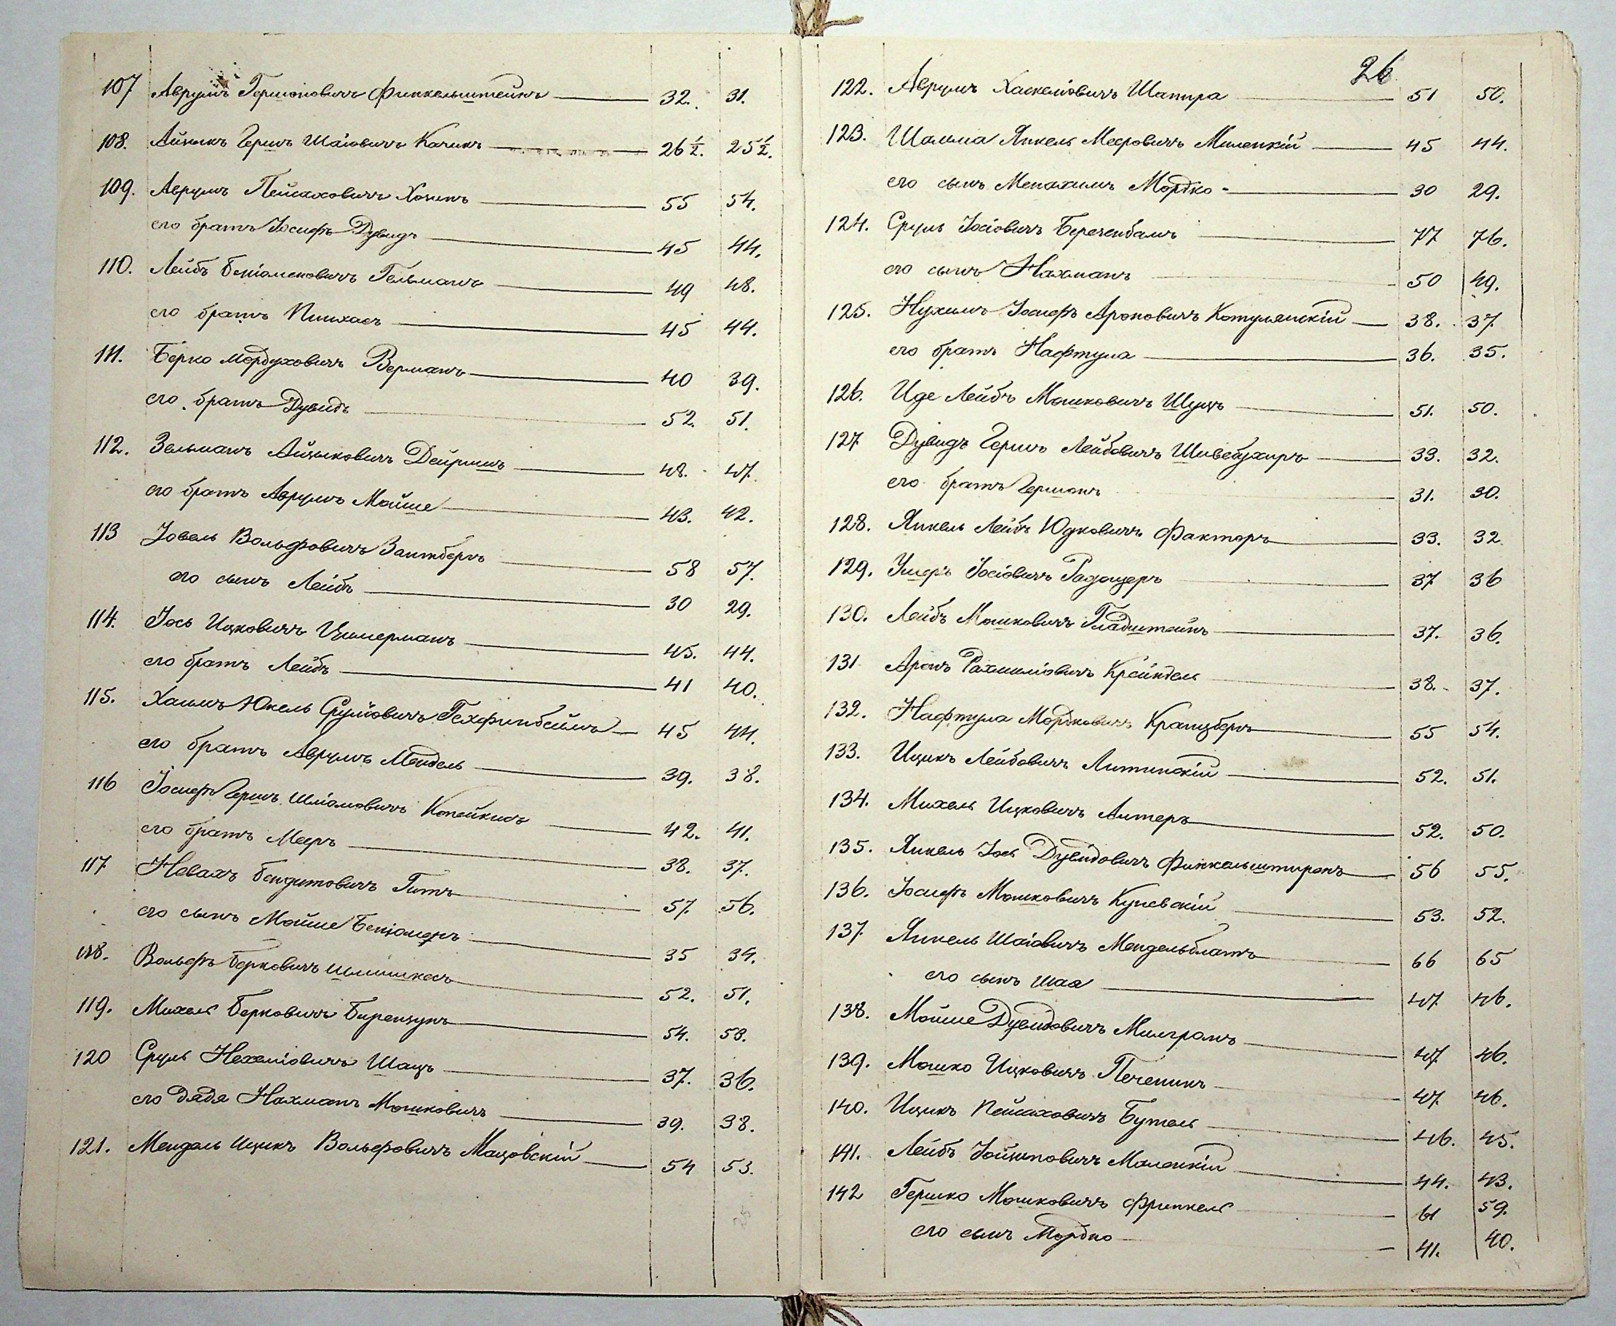 107 Аврумъ Гершоновичъ Финкельштейнъ 32. 31.
108. Айзикъ Гершъ Шаіовичъ Качикъ 26½. 25½.
109. Аврумъ Пейсаховичъ Хоникъ 55 54.
его братъ Іосифъ Дувидъ 45 44.
110. Лейбъ Беніоменовичъ Гельманъ 49 48.
его братъ Пинхасъ 45 44.
111. Берко Мордуховичъ Верманъ 40 39.
его братъ Дувидъ 52. 51.
112. Зельманъ Айзиковичъ Дейришъ 48. 47.
его братъ Аврумъ Мойше 43. 42.
113 Іовель Вольфовичъ Заитбергъ 58 57.
его сынъ Лейбъ 30 29.
114. Іось Ицковичъ Цимерманъ 45. 44.
его братъ Лейбъ 41 40.
115. Хаимъ Юкель Срулiовичъ 45 44.
его братъ Аврумъ Мендель 39. 38.
116 Іосифъ Гершъ Шліомовичъ Копейкисъ 42. 41.
его братъ Мееръ 38. 37.
117 Новахъ Бендитовичъ Гитъ 57. 56.
его сынъ Мойше Беніоменъ 35 34.
118. Вольфъ Берковичъ Шлишкесъ 52. 51.
119. Михель Берковичъ Биренцукъ 54. 58.
120 Сруль Нехеміовичъ Шацъ 37. 36.
его дядя Нахманъ Мошковичъ 39. 38.
121. Мендель Ицикъ Вольфовичъ Мацовскій 54 53.
26
122. Аврумъ Хаскеліовичъ Шапира 51 50.
123. Шліома Янкель Мееровичъ Миленкій 45 44.
его сынъ Менахимъ Мордко 30 29.
124. Сруль Іосіовичъ Береченбамъ 77 76.
его сынъ Нахманъ 50 49.
125. Нухимъ Іосифъ Ароновичъ Котулянскій 38. 37.
его братъ Нафтула 36. 35.
126. Иде Лейбъ Мошковичъ Шуцъ 51. 50.
127 Дувидъ Гершъ Лейбовичъ Шивебухиръ 33. 32.
его братъ Гершонъ 31. 30.
128. Янкель Лейбъ Юдковичъ Факторъ 33. 32
129. Ушеръ Іосіовичъ Радощеръ 37 36
130. Лейбъ Мошковичъ Гладштейнъ 37. 36.
131 Аронъ Рахмиліовичъ Крейндель 38. 37.
132. Нафтула Мордковичъ Кранцбергъ 55 54.
133. Ицикъ Лейбовичъ Литинскій 52. 51.
134. Михель Ицковичъ Алтеръ 52. 50.
135. Янкель Іось Дувидовичъ Финкельштиронъ 56 55.
136. Іосифъ Мошковичъ Куневскій 53. 52.
137. Янкель Шаіовичъ Мендельблатъ 66 65
его сынъ Шая 47 46.
138. Мойше Дувидовичъ Милгромъ 47 46.
139. Мошко Ицковичъ Печеникъ 47. 46.
140. Ицикъ Пейсаховичъ Бутель 46. 45.
141. Лейбъ Іойциповичъ Маленкій 44. 43.
142 Гершко Мошковичъ Френкель 61 59.
его сынъ Мордко 41. 40.